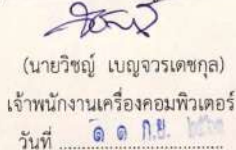 (นายวิชญ์ เบญจวรเดชกุล)
เจ้าพนักงานเครื่องคอมพิวเตอร์
วันที่ ๑ ๑ ก.ย.